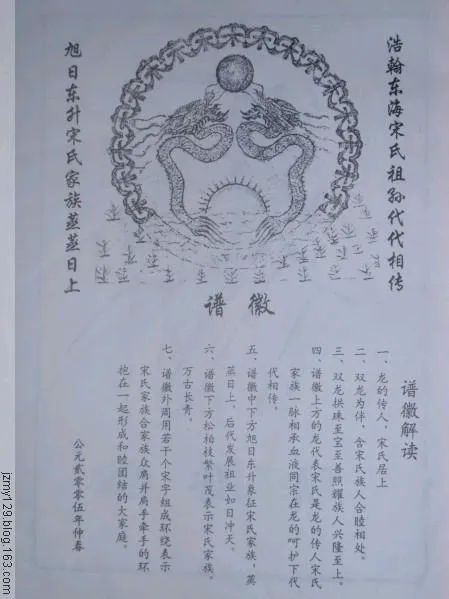 浩瀚东海宋氏祖孙代代相传
旭日东升宋氏家族蒸蒸日上
谱徽
谱徽解读
一、龙的传人,宋氏居上
二、双龙为伴,含宋氏族人合睦相处。
三、双龙拱珠至宝至善照耀族人兴隆至上。
四、谱徽上方的龙代表宋氏是龙的传人宋氏
家族一脉相承血液同宗在龙的呵护下代
代相传。
五、谱徽中下方旭日东升象征宋氏家族,蒸
蒸日上,后代发展祖业如日冲天。
六、谱徽下方松柏枝繁叶茂表示宋氏家族。
万古长青。
七、谱徽外周用若干个宋字组成环绕表示
宋氏家族合家族众肩并肩手牵手的环
抱在一起形成和睦团结的大家庭。
公元贰零零伍年仲春
jzmy129.blog.163.com